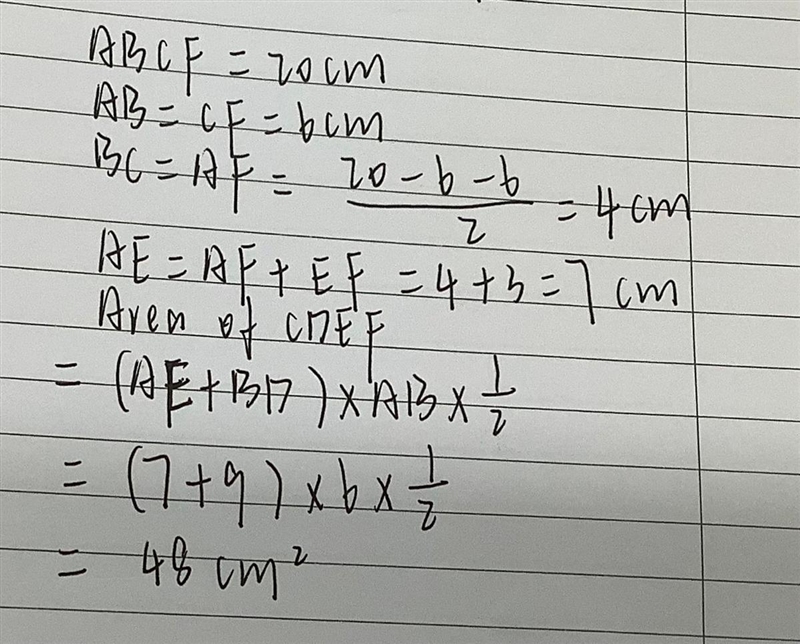 ABCF = 20cm
AB = CF = 6cm
BC = AF = \frac{20-6-6}{2} = 4cm
AE = AF + EF = 4+3 = 7 cm
Area of CDEF
= (AE+BD) × AB × \frac{1}{2}
= (7+9) × 6 × \frac{1}{2}
= 48 cm²